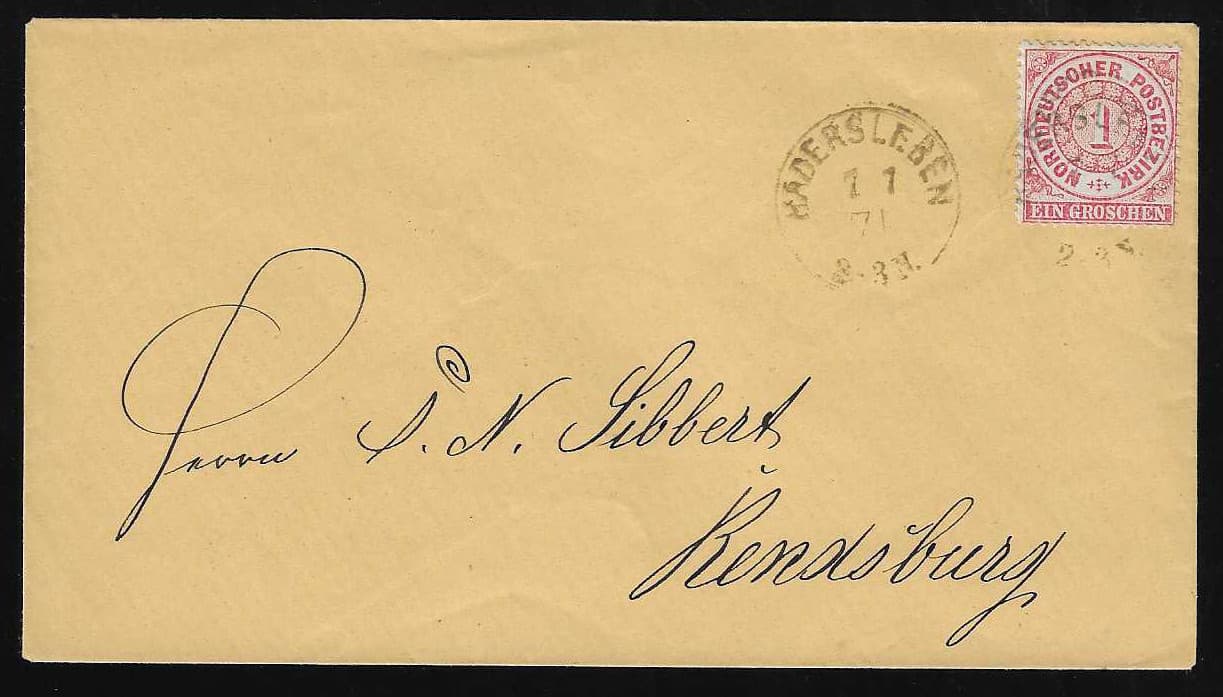 HADERSLEBEN
7 1
71
2-3 N.
NORDDEUTSCHER POSTBEZIRK
1
EIN GROSCHEN
2-3 N.
Herrn S. N. Sibbert
Rendsburg